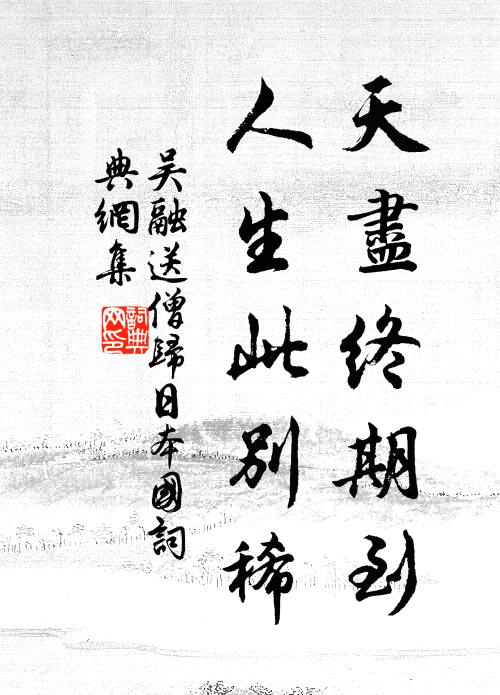 天盡終期到
人生此別稀
吳融送僧歸日本國詞
典網集
詞典
网印